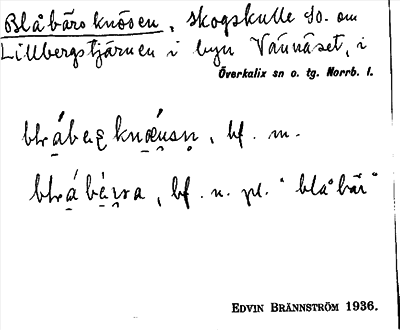 Blåbärsknösen, skogskulle so. om
Lillbergstjärnen i byn Vännäset, i
Överkalix sn o. tg. Norrb. l.
bf. m.
bf. n. pl. "blåbär"
EDVIN BRÄNNSTRÖM 1936.